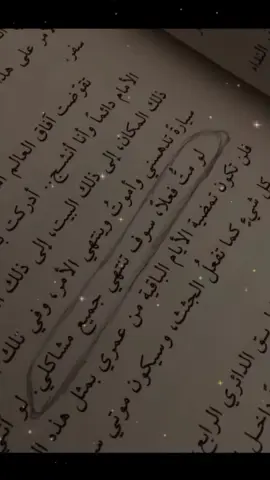 سفر.
تقوّضت آفاق العالم
الأمام دائماً وأنا أنشج: أدركت
ذلك المكان، إلى ذلك البيت، إلى ذلك
سيارة تدهسني وأموتُ وينتهي الأمر، وفي تلك
لو متُّ فعلاً، سوف تنتهي جميع مشاكلي. لو
فلن تكون تمضية الأيام الباقية من عمري بمثل هذه
كل شيءٍ كما تفعل الجثث، وسيكون موتي
الدائري الرابع
داخل